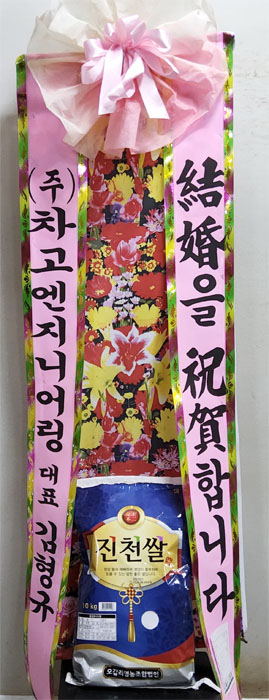 結婚을 祝賀합니다
(주)차고엔지니어링 대표 김형규
진천쌀
10kg
오갑리영농조합법인